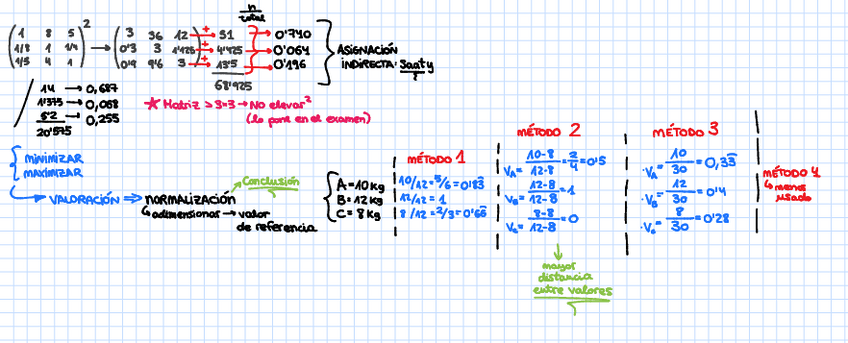 n/total
(1 8 5)² → (3 36 12) + → 51 → 0'740
(1/8 1 1/4) (0'3 3 1'425) + → 4'925 → 0'064
(1/5 4 1) (0'9 9'6 3) + → 13'5 → 0'196
68'925
ASIGNACIÓN
INDIRECTA: Saaty
14 → 0,687
1'375 → 0,068
5'2 → 0,255
20'575
* Matriz > 3=3 → No elevar²
(lo pone en el examen)
MINIMIZAR
MAXIMZAR
VALORACIÓN ⇒ NORMALIZACIÓN
Conclusión
adimensionar → valor
de referencia
A = 10 kg
B = 12 kg
C = 8 Kg
MÉTODO 1
10/12 = 5/6 = 0'83
12/12 = 1
8/12 = 2/3 = 0'66
MÉTODO 2
VA = 10-8/12-8 = 2/4 = 0'5
VB = 12-8/12-8 = 1
VC = 8-8/12-8 = 0
mayor
distancia
entre valores
MÉTODO 3
·VA = 10/30 = 0,33
·VB = 12/30 = 0'4
·VC = 8/30 = 0'28
MÉTODO 4
↳ menos
usado